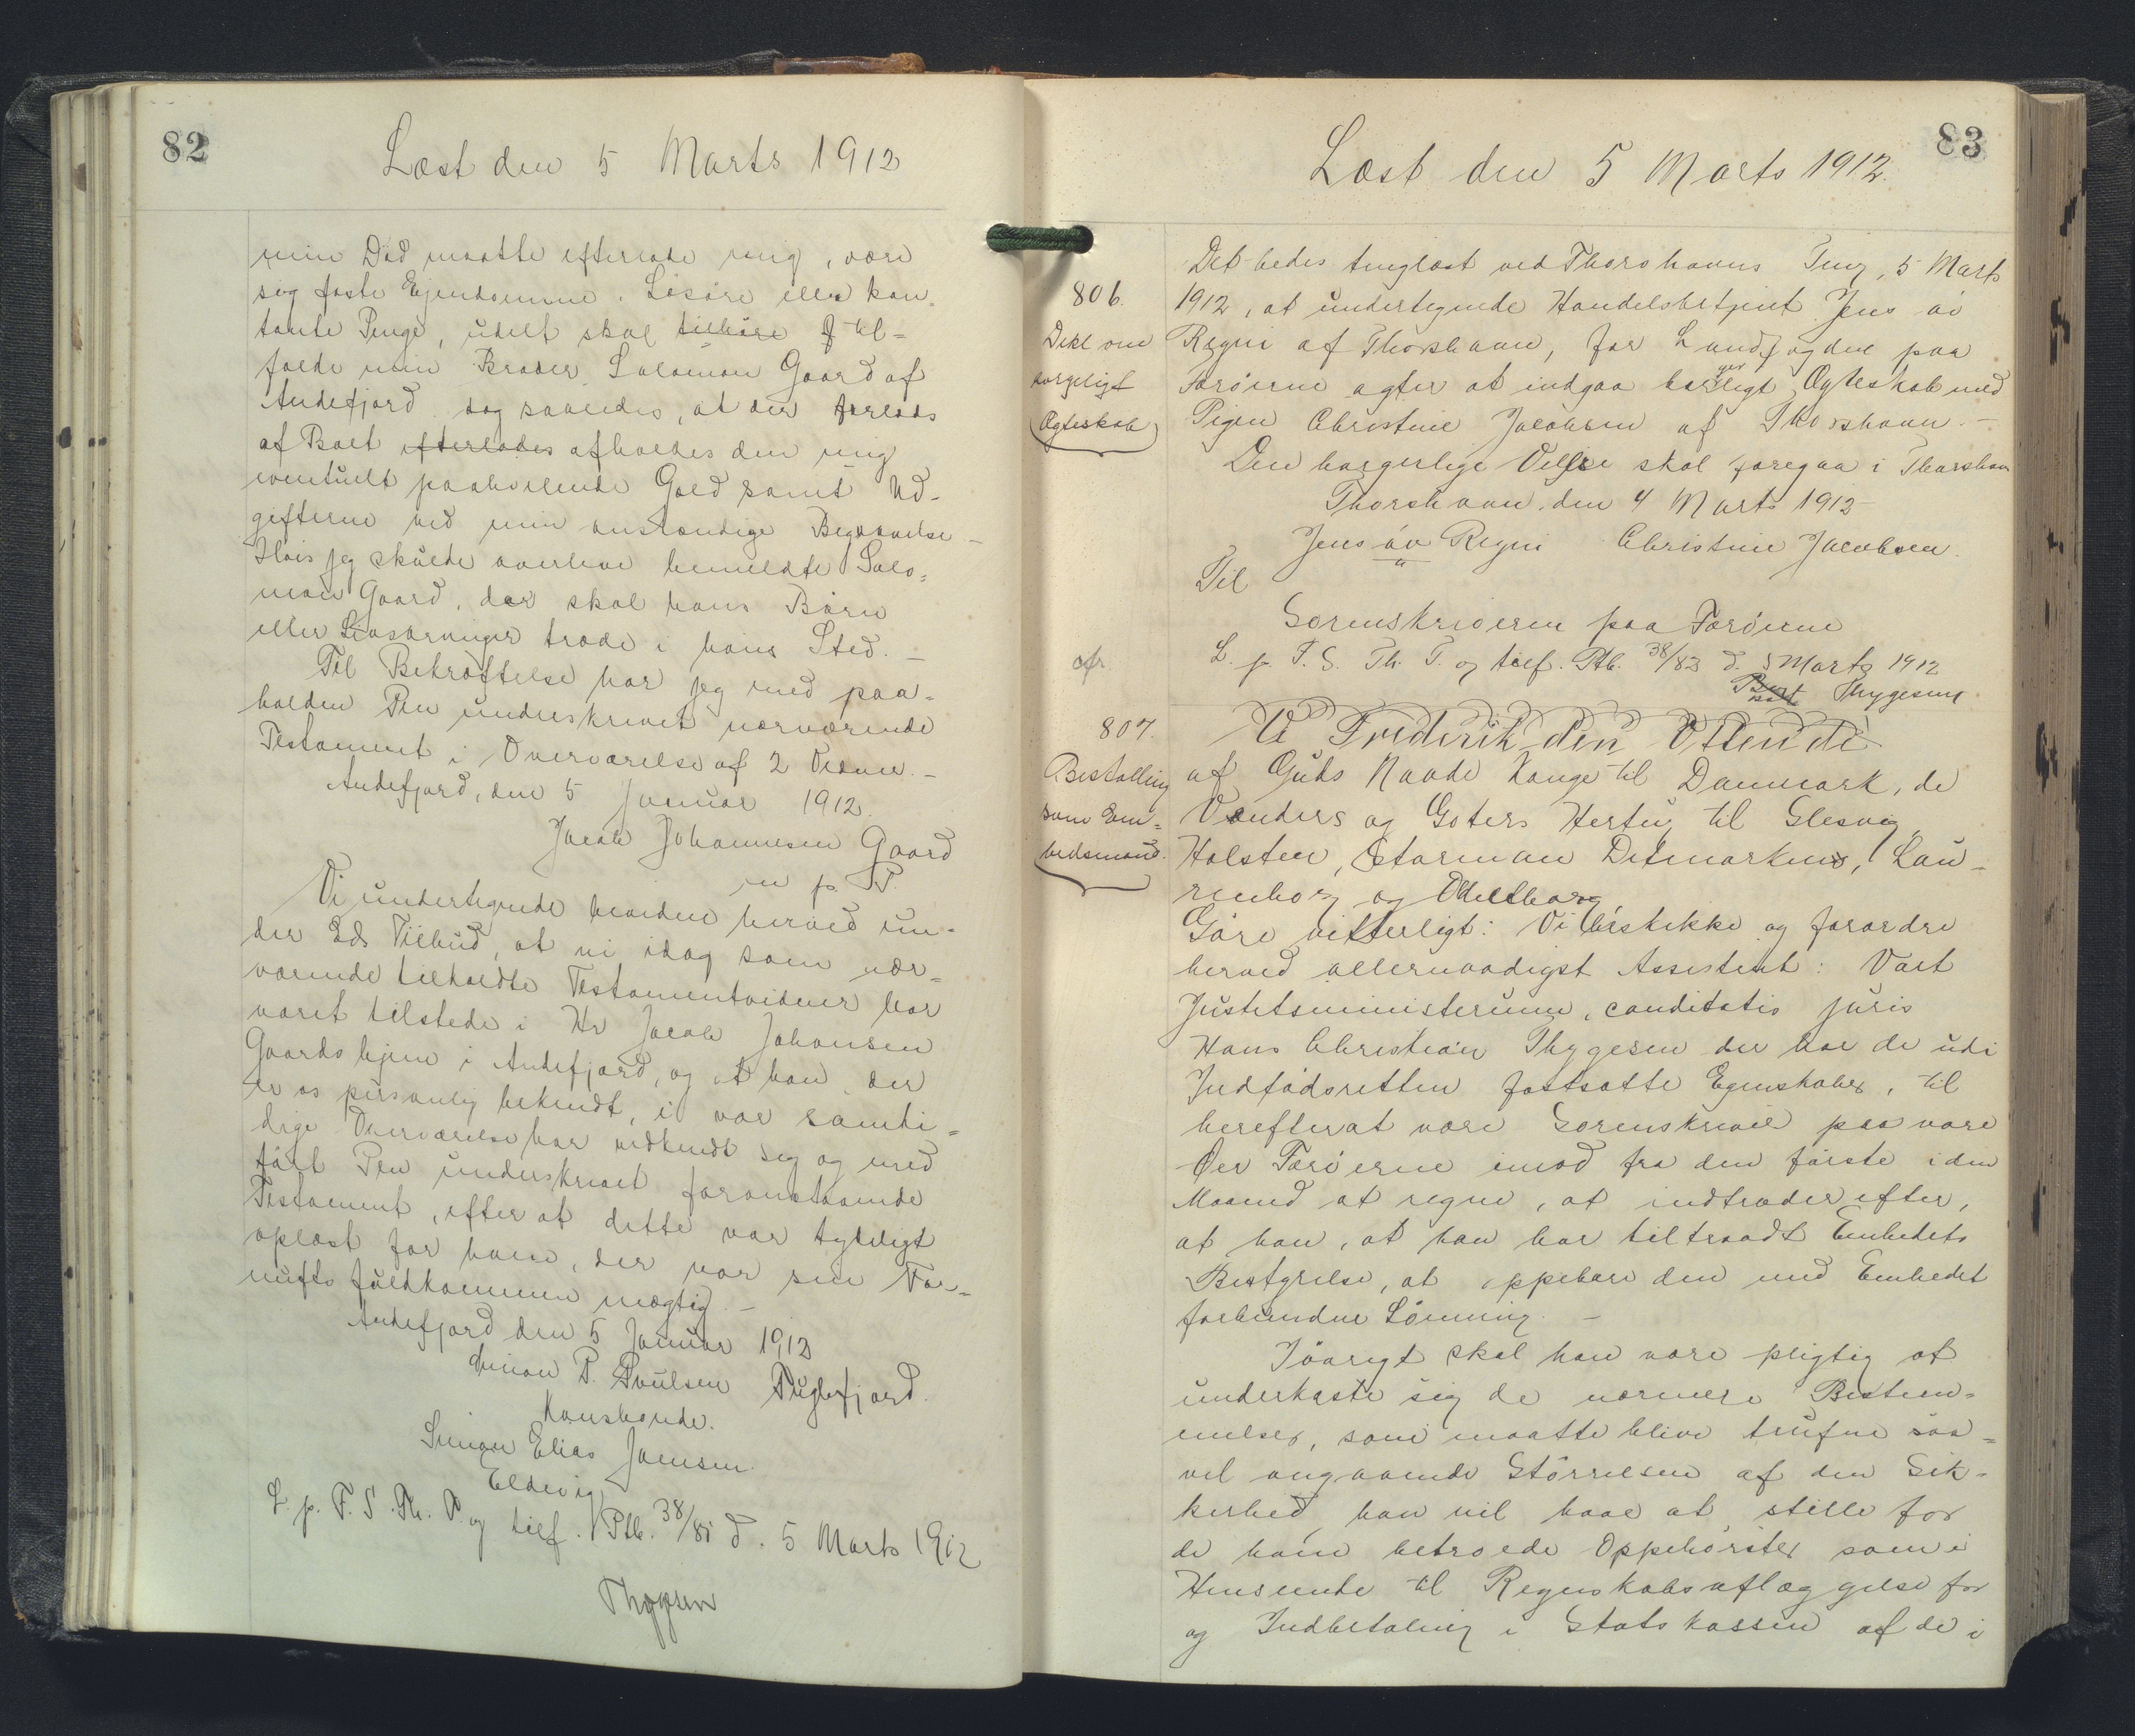 82
Læst den 5 Marts 1912
min Død maatte efterlade mig, være
sig faste Ejendomme, Løsøre eller kon-
tante Penge, udelt skal tilhøre til=
falde min Broder Salomon Gaard af
Andefjord dog saaledes, at der forlods
af Boet efterlades afholdes den mig
eventuelt paahvilende Gæld samt Ud-
gifterne ved min anstændige Begravelse -
Hvis jeg skulde overleve bemeldte Salo=
mon Gaard, da skal hans Børn
eller Livsarvinger træde i hans Sted. -
Til Bekræftelse har jeg med paa=
holden Pen underskrevet nærværende
Testament i Overværelse af 2 Vidner. -
Andefjord, den 5 Januar 1912.
Jacob Johannesen Gaard
m p. P.
Vi undertegnede bevidne herved un-
der Eds Tilbud, at vi idag som nær=
værende tilkaldte Testamentvidner har
været tilstede i Hr Jacob Johansen
Gaards hjem i Andefjord, og at han, der
er os personlig bekendt, i vor samti=
dige Overværelse har vedkendt sig og med
ført Pen underskrevet foranstaaende
Testament, efter at dette var tydeligt
oplæst for ham, der var sin For-
nufts fuldkommen mægtig. -
Andefjord den 5 Januar 1912
Simon P. Poulsen Fuglefjord.
Kongsbonde.
Simon Elias Joensen
Eldevig
L. p. F. S. Th. T. og tilf. Ptb. 38/81 d. 5 Marts 1912
Thygesen
83
Læst den 5 Marts 1912.
Det bedes tinglæst ved Thorshavns Ting, 5 Marts
806.
1912, at undertegnede Handelsbetjent Jens av
Dekl om
Reyni af Thorshavn, før Landfogden paa
borgeligt
Færøerne agter at indgaa borgerligt Ægteskab med
Ægteskab
Pigen Christine Jacobsen af Thorshavn. -
Den borgerlige Vielse skal foregaa i Thorshavn
Thorshavn, den 4 Marts 1912
Jens áv Reyni Christine Jacobsen.
Til
Sorenskriveren paa Færøerne
afr.
L. p. F. S. Th. T. og tilf. Ptb. 38/83 d. 5 Marts 1912
Thygesen
807.
Vi Frederik den Ottende
Bestalling
af Guds Naade Konge til Danmark, de
som Em=
Venders og Goters Hertug til Slesvig,
bedsmand.
Holsten, Stormarn Ditmarken, Lau-
renborg og Oldenborg,
Gøre vitterligt: Vi beskikke og forordre
herved allernaadigst Assistent i Vort
Justitsministerium, canditatis juris
Hans Christian Thygesen der har de udi
Indfødsretten fastsatte Egenskaber, til
herefter at være Sorenskriver paa vore
Øer Færøerne imod fra den første i den
Maaned at regne, at indtræder efter,
at han, at han har tiltraadt Embedets
Bestyrelse, at oppebære den med Embedet
forbundne Lønning. -
Iøvrigt skal han være pligtig at
underkaste sig de nærmere Bestem=
melser, som maatte blive trufne saa=
vel angaaende Størrelsen af den Sik-
kerhed, han vil have at stille for
de ham betroede Oppebørsler som i
Henseende til Regnskabsaflæggelse for
og Indbetaling i Statskassen af de i